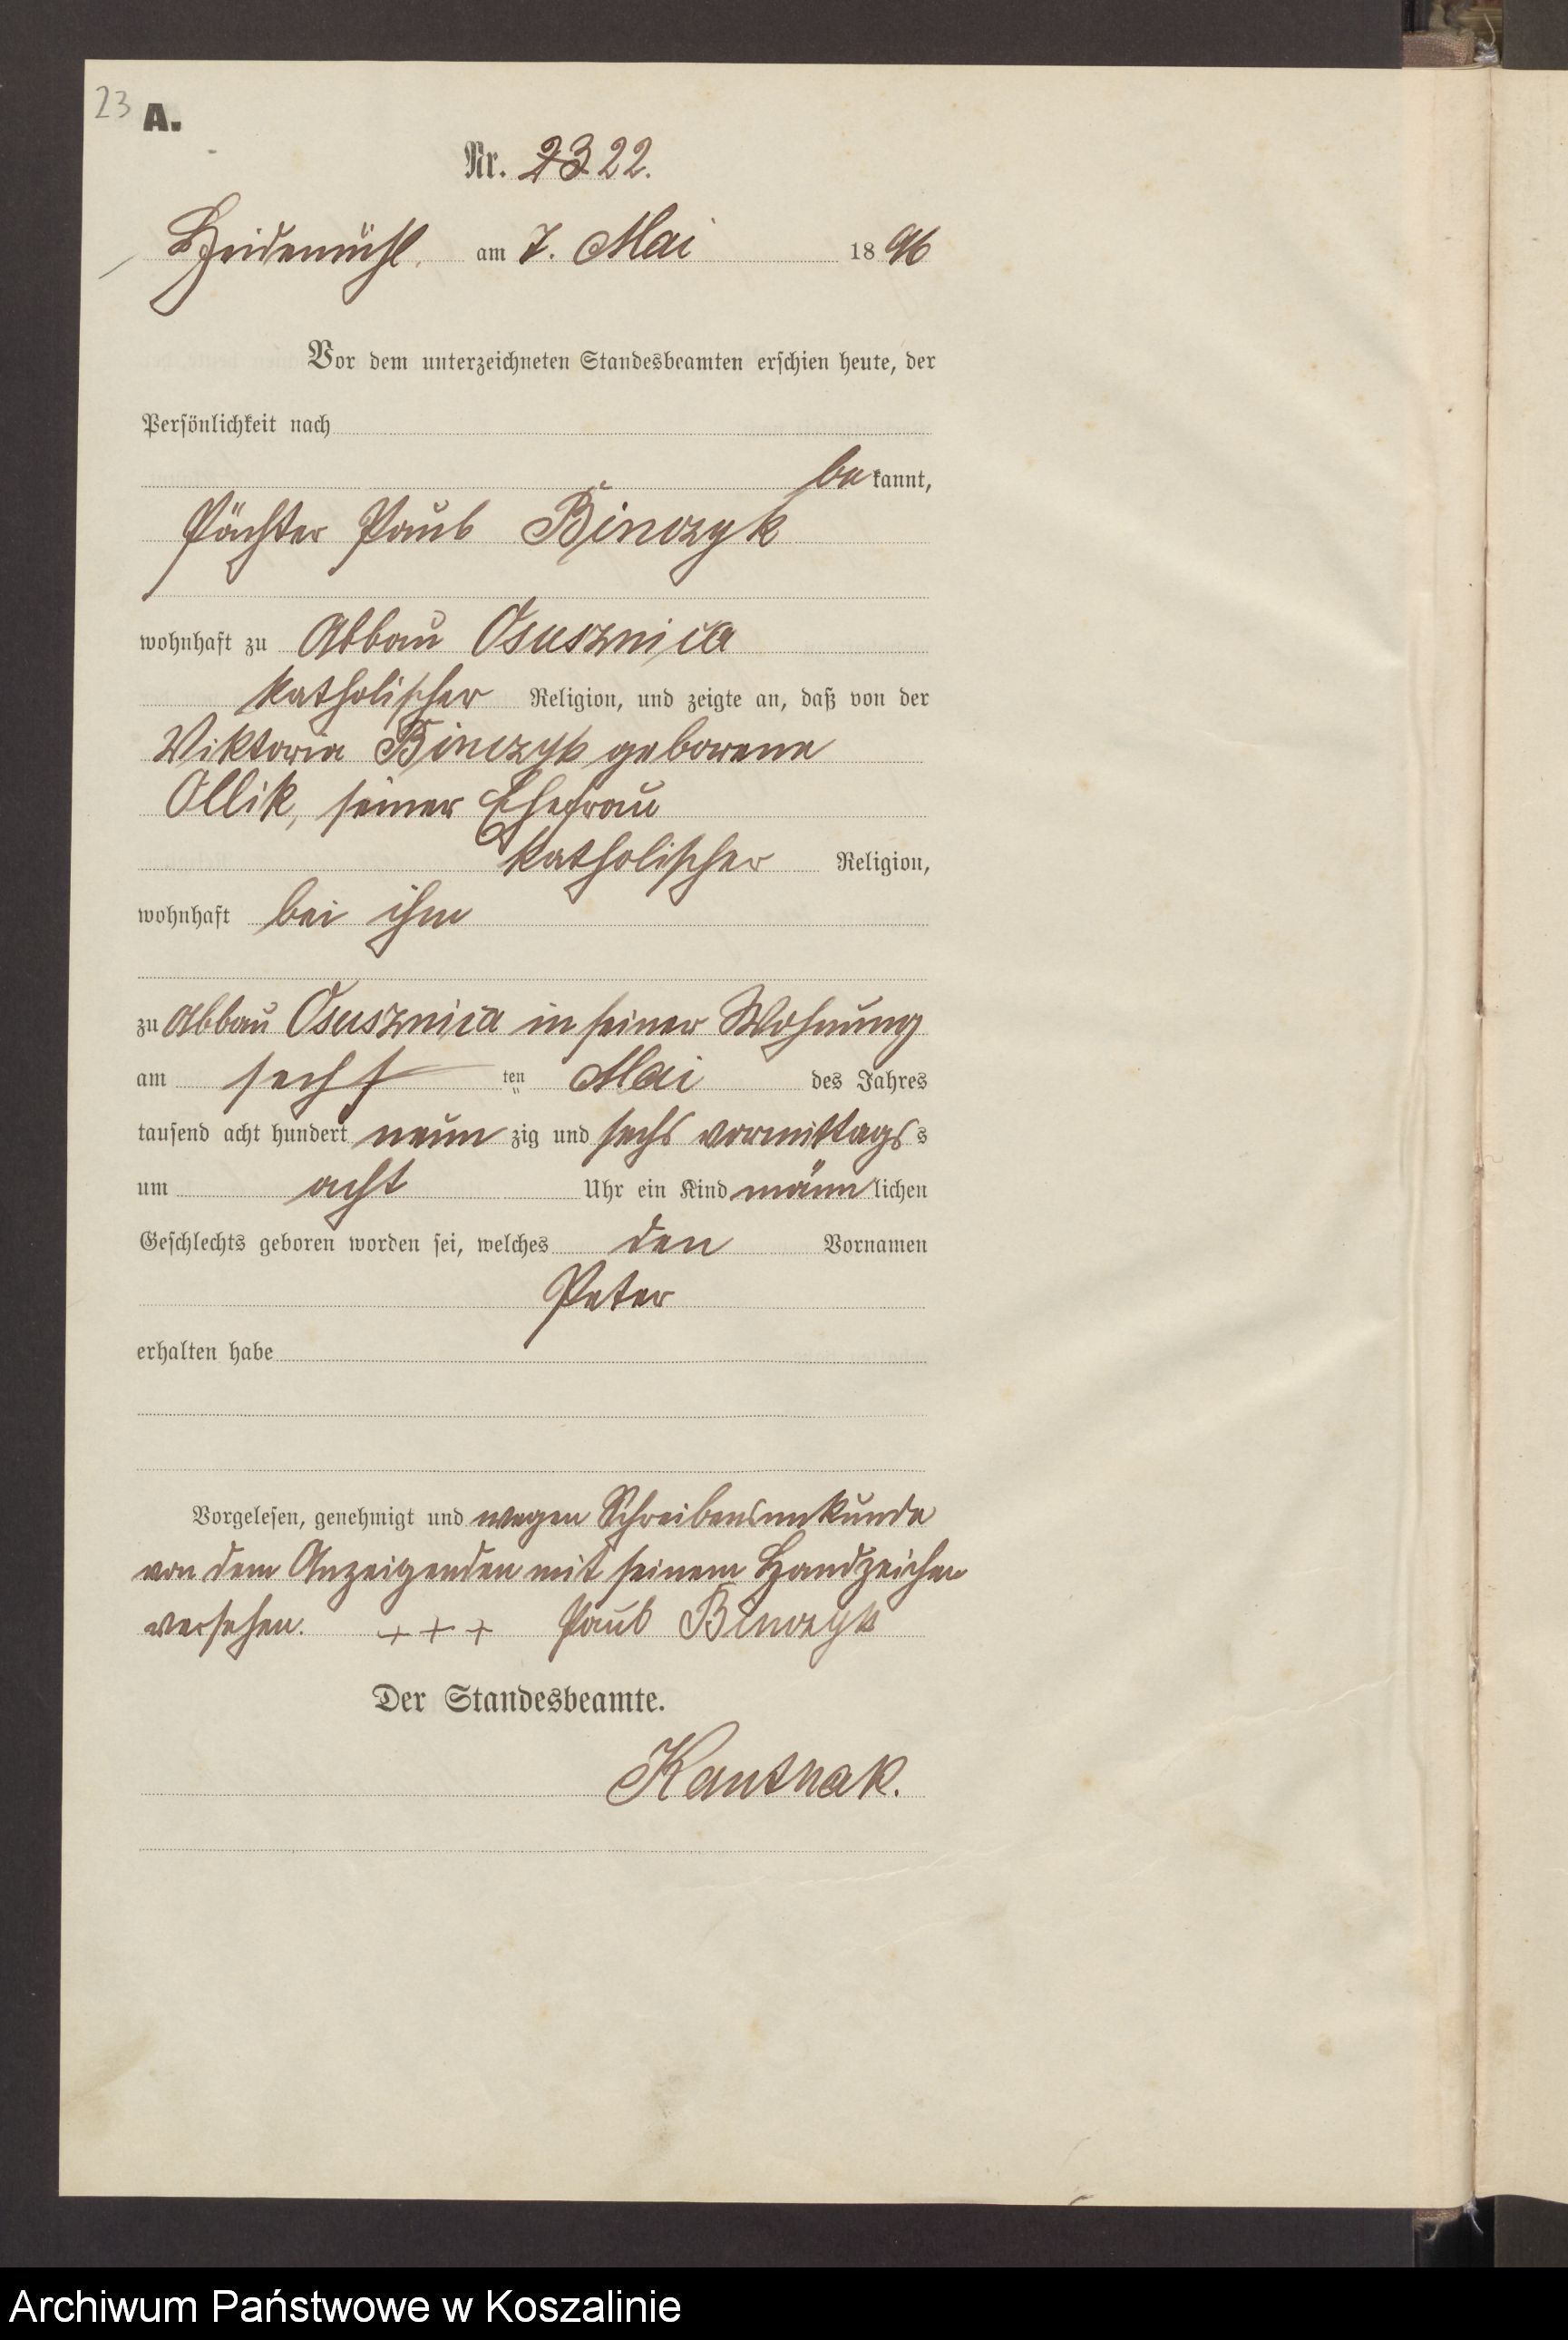 23 A.
Nr. 23 22.
Heidemühl, am 7. Mai 1896
Vor dem unterzeichneten Standesbeamten erschien heute, der
Persönlichkeit nach
bekannt,
Pächter Paul Binczyk
wohnhaft zu Abbau Osusznica
katholischer Religion, und zeigte an, daß von der
Viktoria Binczyk geborene
Ollik, seiner Ehefrau
katholischer Religion,
wohnhaft bei ihm
zu Abbau Osusznica in seiner Wohnung
am sechsten Mai des Jahres
tausend acht hundert neunzig und sechs vormittags s
um acht Uhr ein Kind männlichen
Geschlechts geboren worden sei, welches den Vornamen
Peter
erhalten habe
Vorgelesen, genehmigt und wegen Schreibensunkunde
von dem Anzeigenden mit seinem Handzeichen
versehen. +++ Paul Binczyk
Der Standesbeamte.
Kanthak.
Archiwum Państwowe w Koszalinie